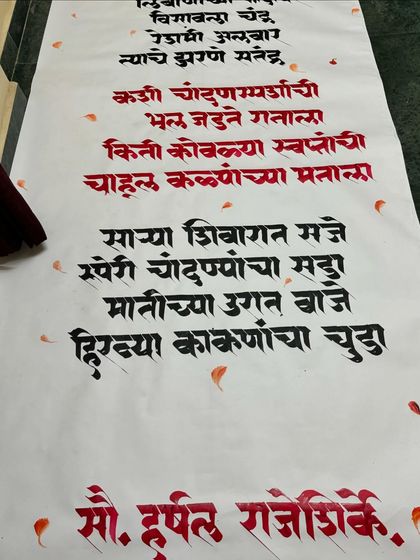 विसावला चंद्र
रेशमी अलवार
त्याचे झरणे सतंद्र
कशी चांदणस्पर्शाची
भूल जडते रानाला
किती कोवळ्या स्वप्नांची
चाहूल कळ्यांच्या मनाला
साऱ्या शिवारात सजे
रुपेरी चांदण्यांचा सडा
मातीच्या उरात वाजे
हिरव्या काकणांचा चुडा
सौ. हर्षल राजेशिर्के.